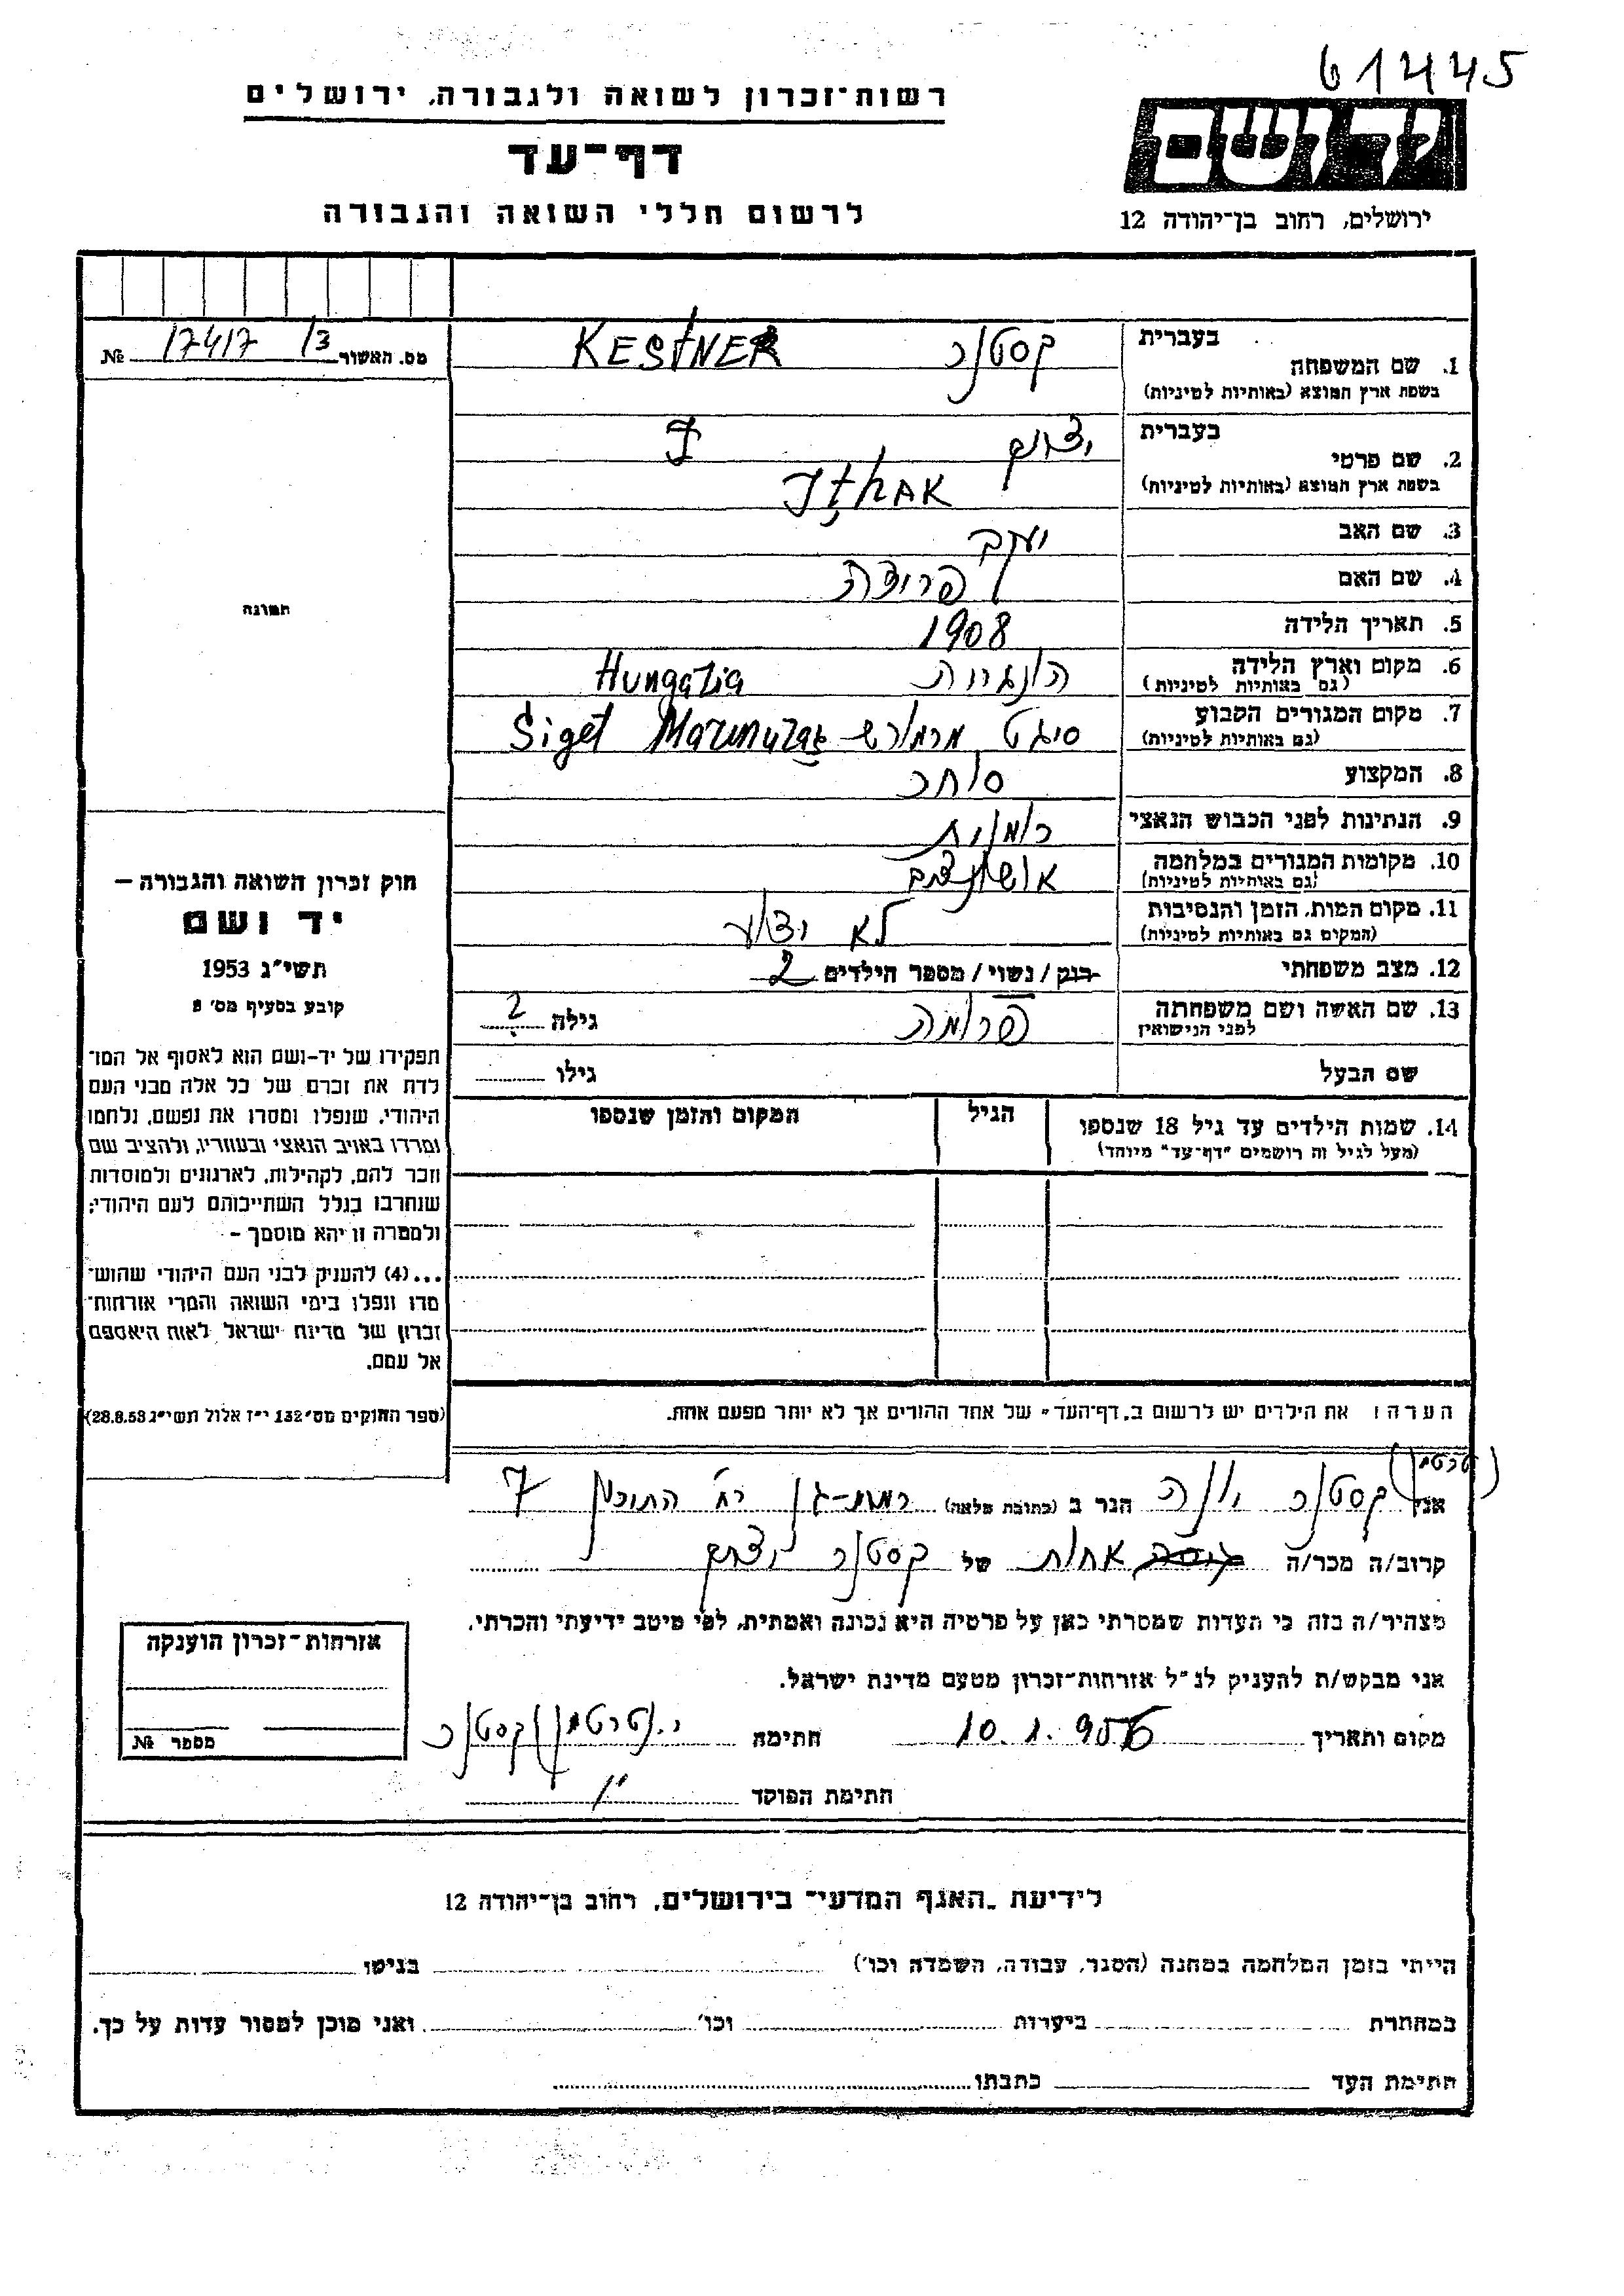 61445
רשות־זכרון לשואה ולגבורה, ירושלים
יד ושם
דף־עד
לרשום חללי השואה והגבורה
ירושלים, רחוב בן־יהודה 12
מס. האשור 17417 /3 №
בעברית קסטנר KESTNER
1. שם המשפחה
בשפת ארץ המוצא (באותיות לטיניות)
בעברית יצחק
2. שם פרטי
בשפת ארץ המוצא (באותיות לטיניות) IŢHAK
3. שם האב יעקב
4. שם האם
5. תאריך הלידה 1908
6. מקום וארץ הלידה הונגריה Hungaria
(גם באותיות לטיניות)
7. מקום המגורים הקבוע סיגט מרמורש Siget
(גם באותיות לטיניות)
8. המקצוע סוחר
9. הנתינות לפני הכבוש הנאצי
10. מקומות המגורים במלחמה
(גם באותיות לטיניות)
11. מקום המות, הזמן והנסיבות לא ידוע
(המקום גם באותיות לטיניות)
12. מצב משפחתי רוק / נשוי / מספר הילדים 2
13. שם האשה ושם משפחתה גילה ?
לפני הנישואין
שם הבעל גילו
תמונה
14. שמות הילדים עד גיל 18 שנספו הגיל המקום והזמן שנספו
(מעל לגיל זה רושמים "דף־עד" מיוחד)
חוק זכרון השואה והגבורה –
יד ושם
תשי"ג 1953
קובע בסעיף מס' 2
תפקידו של יד-ושם הוא לאסוף אל המו־
לדת את זכרם של כל אלה מבני העם
היהודי, שנפלו ומסרו את נפשם, נלחמו
ומרדו באויב הנאצי ובעוזריו, ולהציב שם
וזכר להם, לקהילות, לארגונים ולמוסדות
שנחרבו בגלל השתייכותם לעם היהודי;
ולמטרה זו יהא מוסמך –
...(4) להעניק לבני העם היהודי שהוש־
מדו ונפלו בימי השואה והמרי אזרחות־
זכרון של מדינת ישראל לאות היאספם
אל עמם.
(ספר החוקים מס' 132 י"ז אלול תשי"ג 28.8.53)
הערה: את הילדים יש לרשום ב„דף־העד" של אחד ההורים אך לא יותר מפעם אחת.
אני קסטנר יונה הגר ב (כתובת מלאה) רמת-גן רח' 7
קרוב/ה מכר/ה אחות של קסטנר יצחק
מצהיר/ה בזה כי העדות שמסרתי כאן על פרטיה היא נכונה ואמתית, לפי מיטב ידיעתי והכרתי.
אני מבקש/ת להעניק לנ"ל אזרחות־זכרון מטעם מדינת ישראל.
מקום ותאריך 10.1.956 חתימה קסטנר
חתימת הפוקד
אזרחות־זכרון הוענקה
מספר №
לידיעת „האגף המדעי" בירושלים, רחוב בן־יהודה 12
הייתי בזמן המלחמה במחנה (הסגר, עבודה, השמדה וכו') בגיטו
במחתרת ביערות וכו' ואני מוכן למסור עדות על כך.
חתימת העד כתבתו